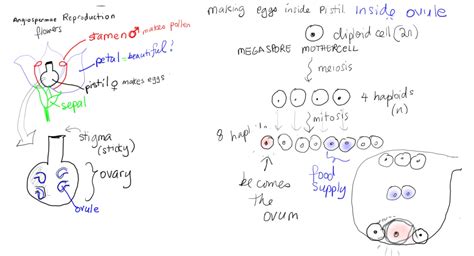 Angiospermae Reproduction
flowers
stamen ♂ makes pollen
petal - beautiful!
pistil ♀ makes eggs
sepal
stigma
(sticky)
ovary
ovule
making eggs inside Pistil inside ovule
diploid cell (2n)
MEGASPORE MOTHERCELL
meiosis
4 haploids
(n)
mitosis
8 haploids
becomes
the
ovum
food
supply